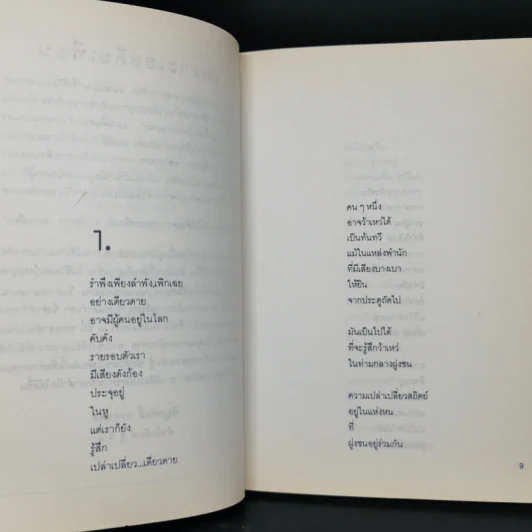 1.
รำพึงเพียงลำพัง,เพิกเฉย
อย่างเดียวดาย
อาจมีผู้คนอยู่ในโลก
คับคั่ง
รายรอบตัวเรา
มีเสียงดังก้อง
ประจุอยู่
ในหู
แต่เราก็ยัง
รู้สึก
เปล่าเปลี่ยว...เดียวดาย
คน ๆ หนึ่ง
อาจว้าเหว่ได้
เป็นทันทวี
แม้ในแหล่งพำนัก
ที่มีเสียงบางเบา
ให้ยิน
จากประตูถัดไป
มันเป็นไปได้
ที่จะรู้สึกว้าเหว่
ในท่ามกลางฝูงชน
ความเปล่าเปลี่ยวสถิตย์
อยู่ในแห่งหน
ที่
ฝูงชนอยู่ร่วมกัน
9